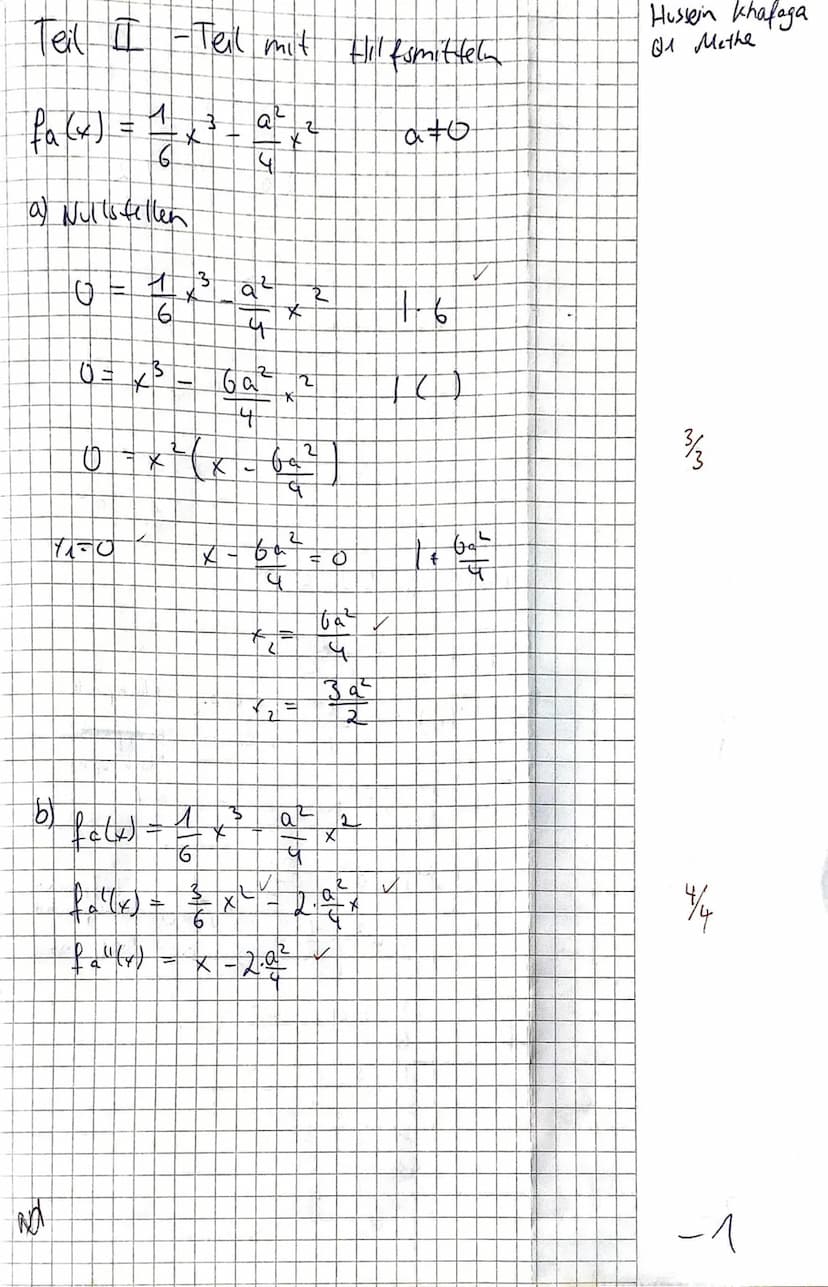 Hussein Khafaga
Q1 Mathe
Teil II - Teil mit Hilfsmitteln
fa(x) = 1/6 x³ - a²/4 x² a≠0
a) Nullstellen
0 = 1/6 x³ - a²/4 x² | · 6 ✓
0 = x³ - 6a²/4 x² | ( )
0 = x² (x - 6a²/4)
3/3
x1=0 ✓ x - 6a²/4 = 0 | + 6a²/4
x₂ = 6a²/4 ✓
x₂ = 3a²/2
b) fa(x) = 1/6 x³ - a²/4 x²
fa'(x) = 3/6 x² ✓ - 2·a²/4 x ✓
4/4
fa''(x) = x - 2·a²/4 ✓
-1